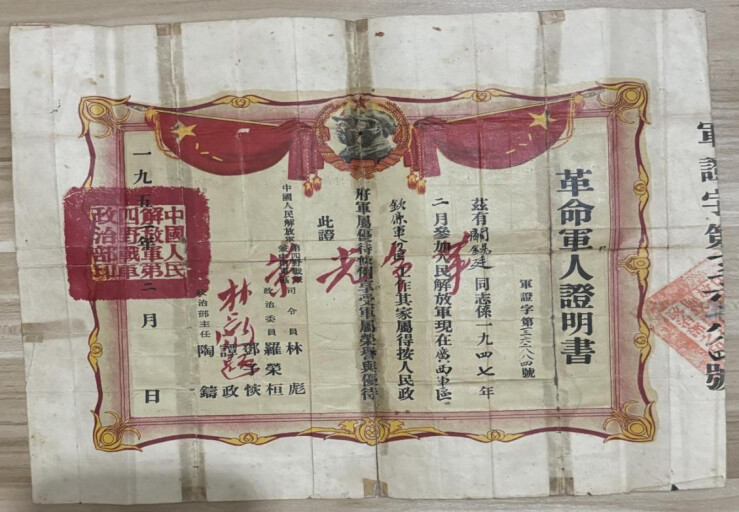 革命軍人證明書
軍證字第三六二八八四號
茲有關錫廷同志係一九四七年
二月參加人民解放軍現在廣西軍區
欽廉軍分區工作其家屬得按人民政
府軍屬優待條例享受軍屬榮譽與優待
此證
中國人民解放軍第四野戰軍
司令員 林彪
政治委員 羅榮桓
鄧子恢
譚政
政治部主任 陶鑄
一九五 年 二月 日
中國人民
解放軍第
四野戰軍
政治部印
光榮
軍證字第
號